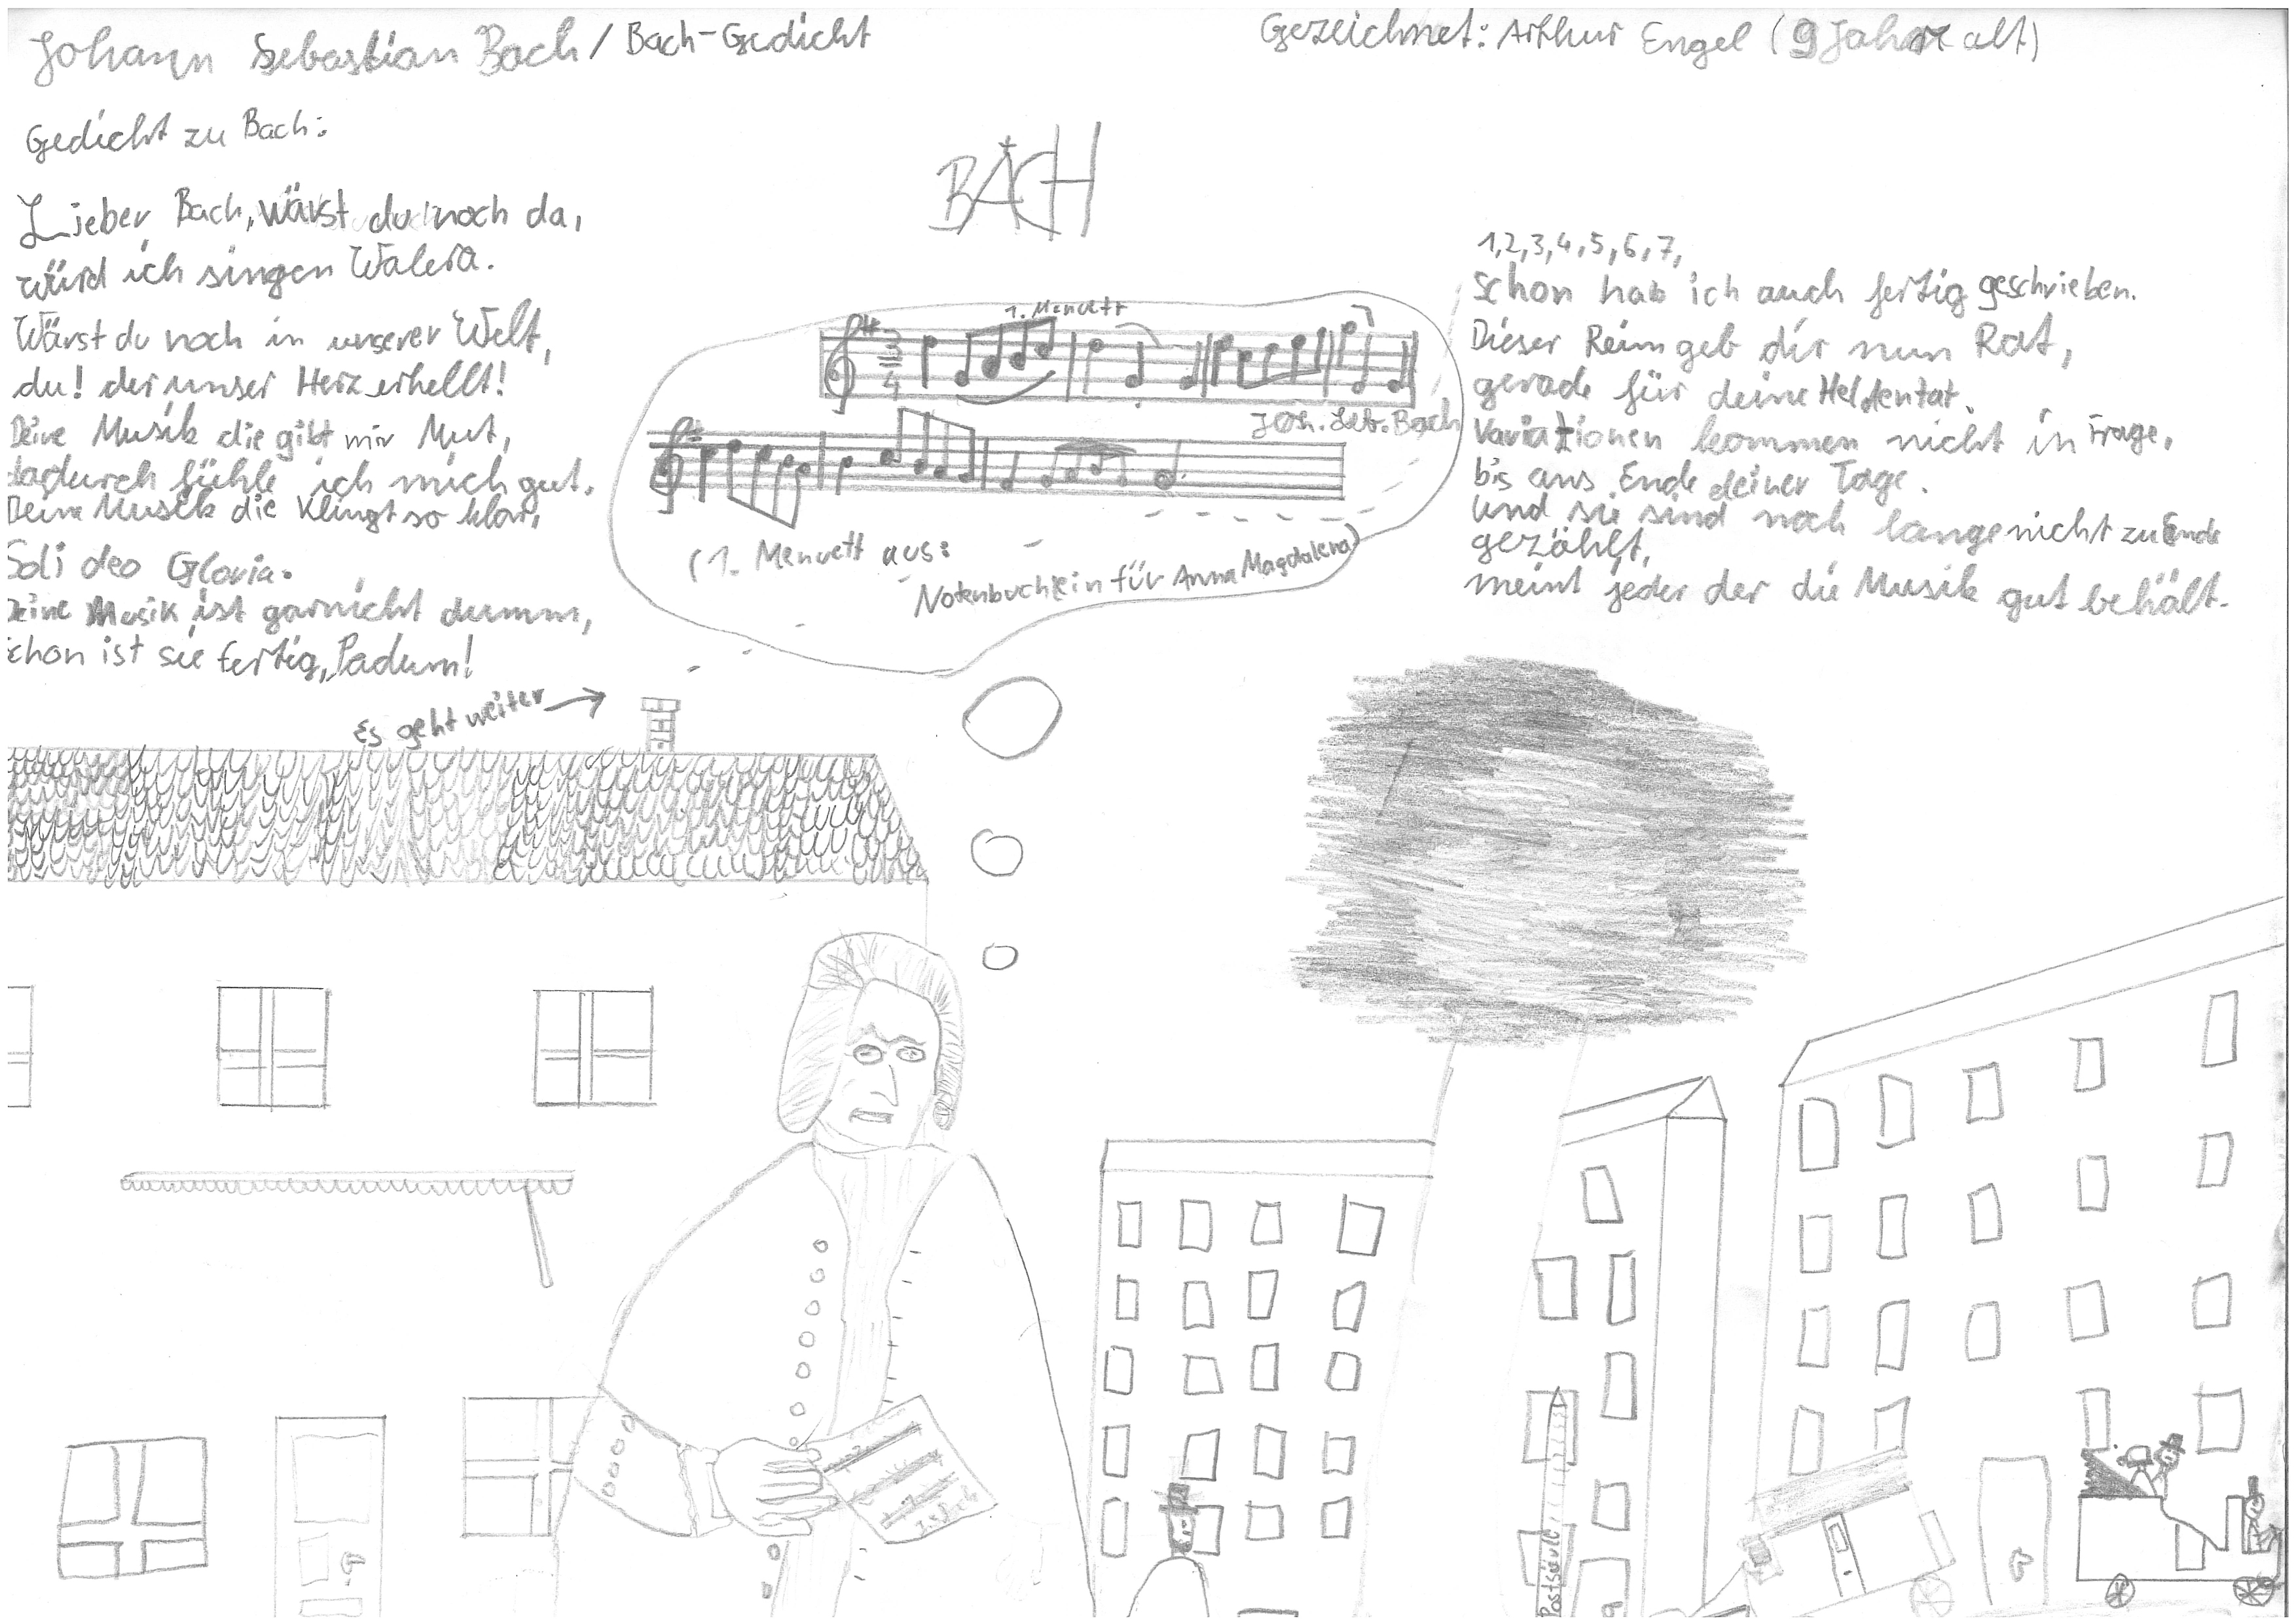 Johann Sebastian Bach / Bach-Gedicht
Gezeichnet: Arthur Engel (9 Jahre alt)
Gedicht zu Bach:
Lieber Bach, wärst du noch da,
würd ich singen Waleia.
Wärst du noch in unserer Welt,
du! der unser Herz erhellt!
Deine Musik die gibt mir Mut,
dadurch fühle ich mich gut.
Deine Musik die klingt so klar,
Soli deo Gloria.
Deine Musik ist garnicht dumm,
schon ist sie fertig, Padum!
Es geht weiter →
BACH
1. Menuett
3
4
Joh. Seb. Bach
(1. Menuett aus:
Notenbuchlein für Anna Magdalena)
1, 2, 3, 4, 5, 6, 7,
schon hab ich auch fertig geschrieben.
Dieser Reim geb dir nun Rat,
gerade für deine Heldentat.
Variationen kommen nicht in Frage,
bis ans Ende deiner Tage.
Und sie sind noch lange nicht zu Ende
gezählt,
meint jeder der die Musik gut behält.
J.S.Bach
Postsäule